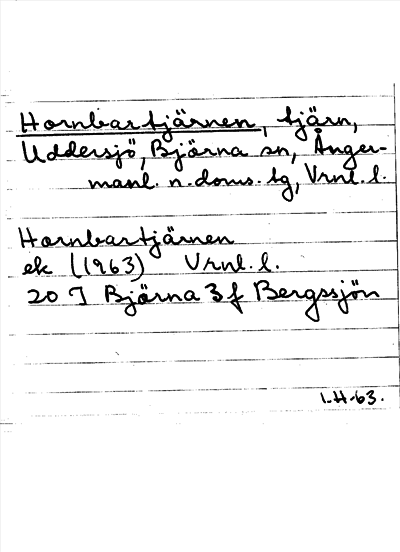 Hornbartjärnen, tjärn,
Uddersjö, Björna sn, Ånger-
manl. n. doms. tg, Vrnl. l.
Hornbartjärnen
ek (1963) Vrnl. l.
20 I Björna 3 f Bergssjön
1-H-63.